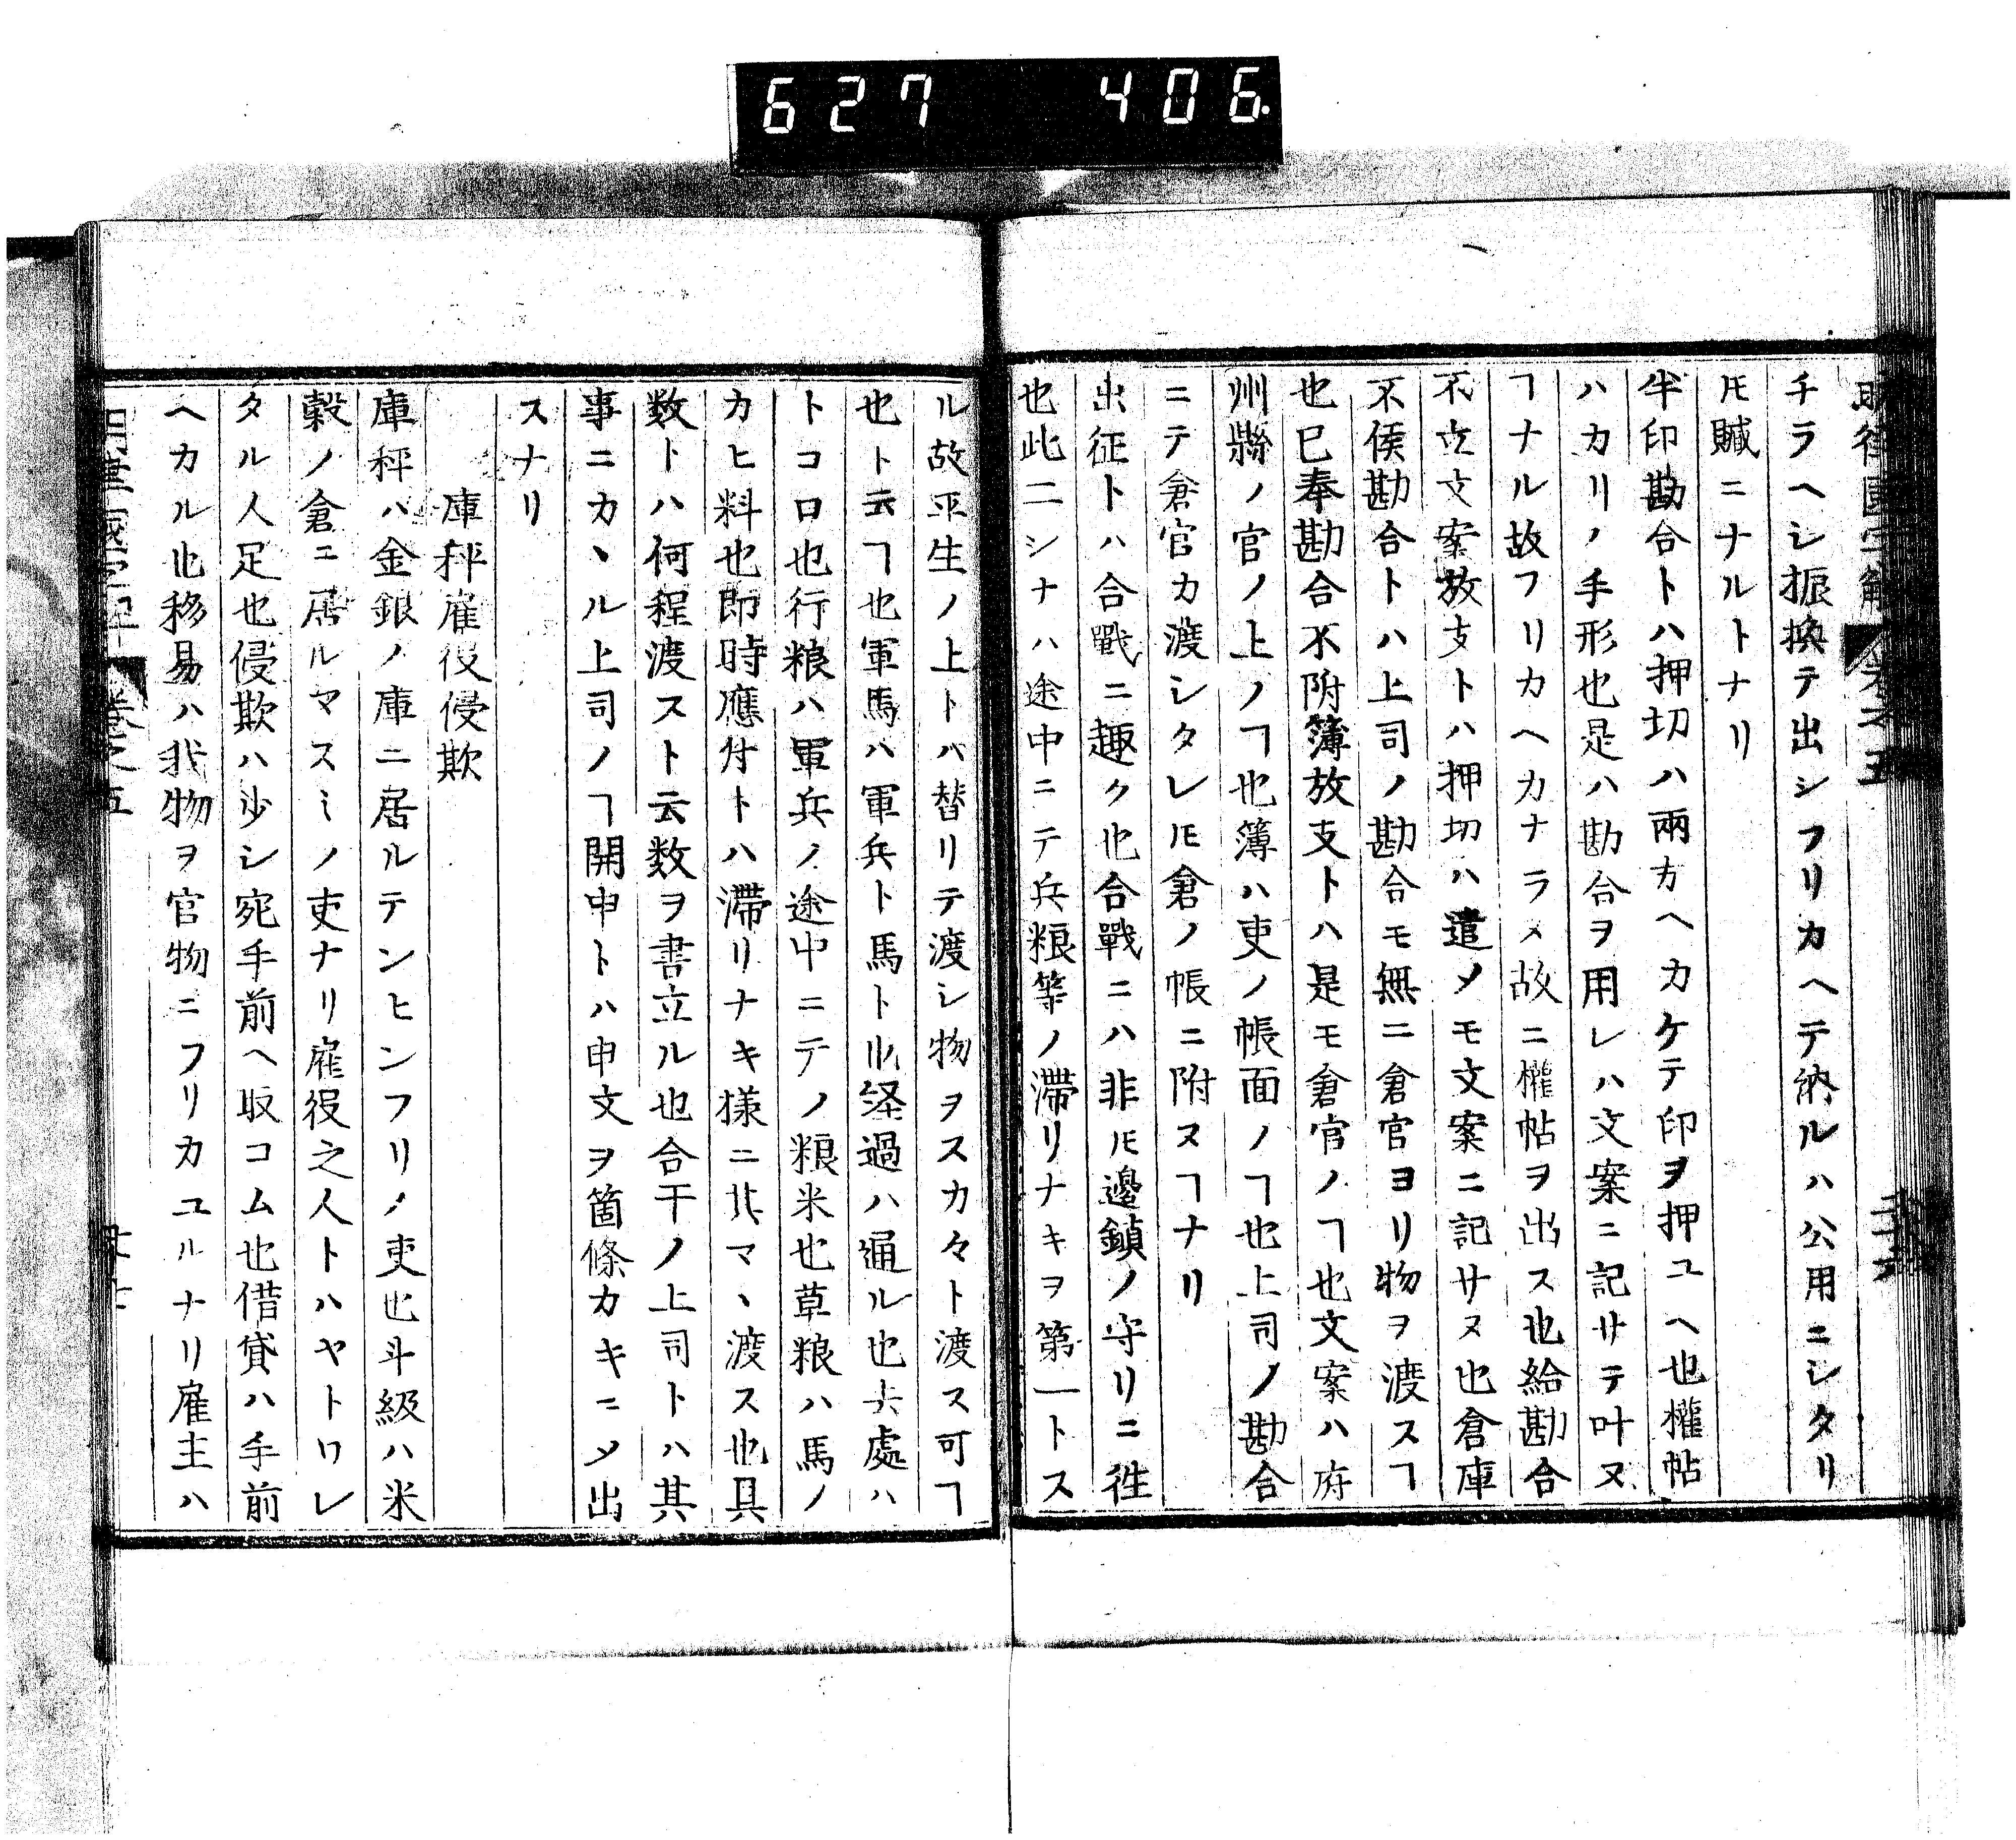 627 406
明律國字解 卷之五
チラヘシ振換テ出シフリカヘテ納ルハ公用ニシタリ
𪜈贓ニナルトナリ
半印勘合トハ押切ハ兩方ヘカケテ印ヲ押ユヘ也權帖
ハカリノ手形也是ハ勘合ヲ用レハ文案ニ記サテ叶ヌ
ヿナル故フリカヘカナラヌ故ニ權帖ヲ出ス也給勘合
不立文案放支トハ押切ハ遣メモ文案ニ記サヌ也倉庫
不俟勘合トハ上司ノ勘合モ無ニ倉官ヨリ物ヲ渡スヿ
也已奉勘合不附簿放支トハ是モ倉官ノヿ也文案ハ府
州縣ノ官ノ上ノヿ也簿ハ吏ノ帳面ノヿ也上司ノ勘合
ニテ倉官カ渡シタレ𪜈倉ノ帳ニ附ヌヿナリ
出征トハ合戰ニ趣ク也合戰ニハ非𪜈邊鎮ノ守リニ徃
也此二シナハ途中ニテ兵粮等ノ滯リナキヲ第一トス
ル故平生ノ上トハ替リテ渡シ物ヲスカ々ト渡ス可ヿ
也ト云ヿ也軍馬ハ軍兵ト馬ト也経過ハ通ル也去處ハ
トコロ也行粮ハ軍兵ノ途中ニテノ粮米也草粮ハ馬ノ
カヒ料也即時應付トハ滯リナキ樣ニ其マヽ渡ス也具
数トハ何程渡スト云数ヲ書立ル也合干ノ上司トハ其
事ニカヽル上司ノヿ開申トハ申文ヲ箇條カキニメ出
スナリ
庫秤雇役侵欺
庫秤ハ金銀ノ庫ニ居ルテンヒンフリノ吏也斗級ハ米
穀ノ倉ニ居ルマスミノ吏ナリ雇役之人トハヤトワレ
タル人足也侵欺ハ少シ宛手前ヘ取コム也借貸ハ手前
ヘカル也移易ハ我物ヲ官物ニフリカユルナリ雇主ハ